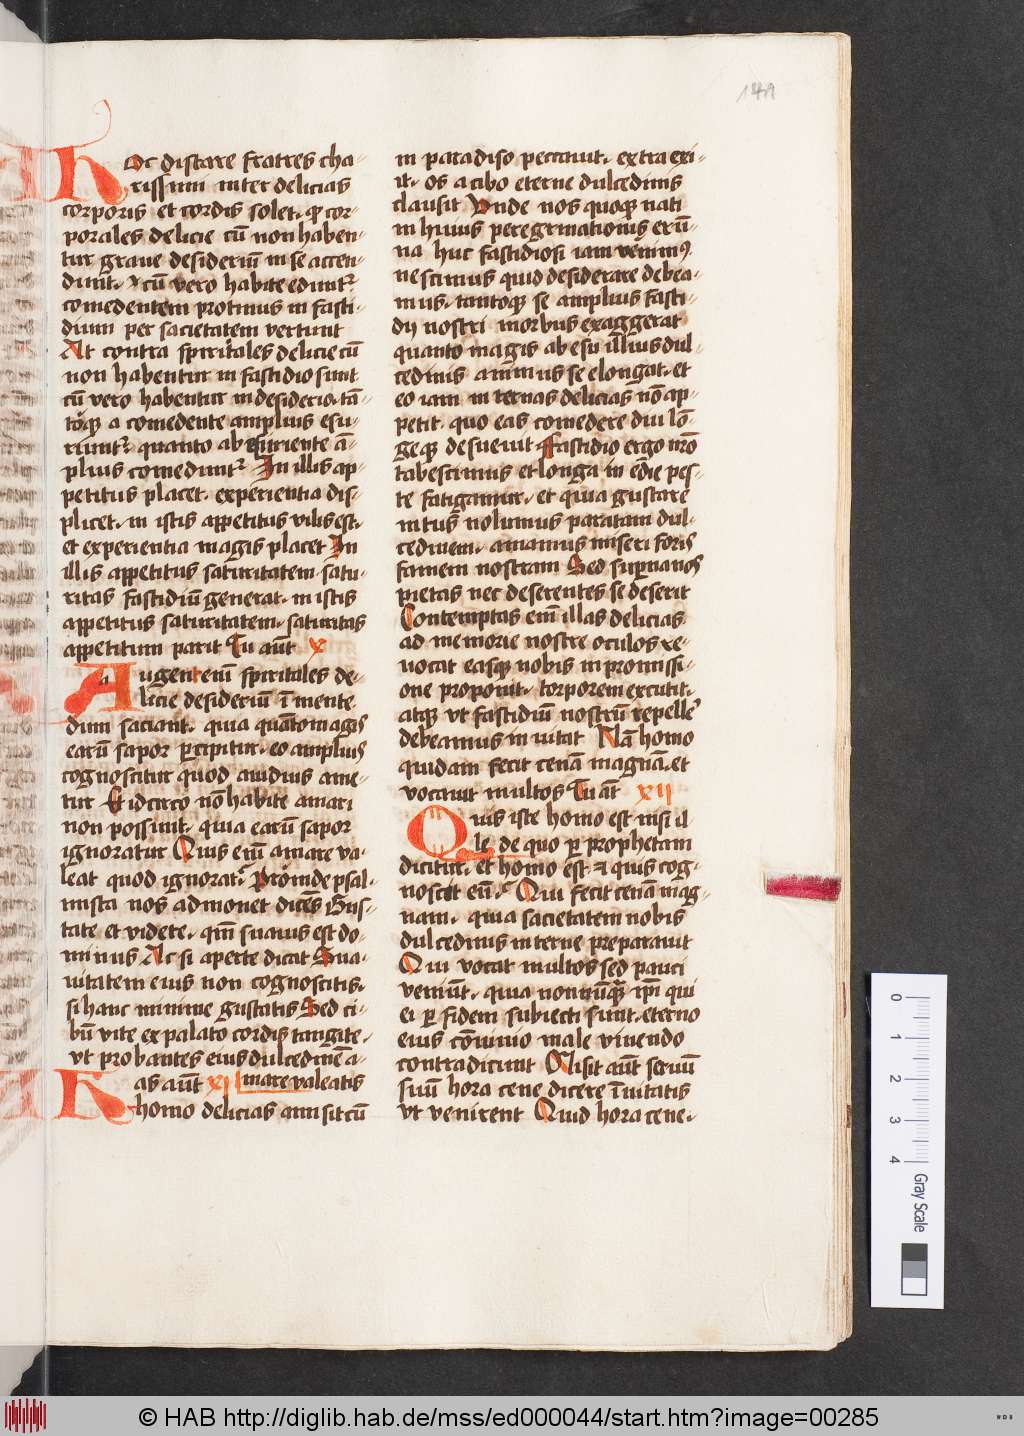 Hoc distare fratres cha-
rissimi inter delicias
corporis et cordis solet. qp cor-
porales delicie cū non haben-
tur graue desideriū in se accen-
dunt. cū vero habite eduntr
comedentem protinus in fasti-
dium per sacietatem vertunt
At contra spiritales delicie cū
non habentur in fastidio sunt
cū vero habentur in desiderio. tā-
toqz a comedente amplius esu-
riuntr. quanto ab esuriente ā-
plius comeduntr In illis ap-
petitus placet. experientia dis-
plicet. in istis appetitus vilis est.
et experientia magis placet In
illis appetitus saturitatem. satu-
ritas fastidiū generat. in istis
appetitus saturitatem. saturitas
appetitum parit Tu aūt x
Augent enī spiritales de-
licie desideriū ī mente
dum saciant. quia quāto magis
earū sapor percipitur. eo amplius
cognoscitur quod auidius ame-
tur Et idcirco nō habite amari
non possunt. quia earū sapor
ignoratur Quis enī amare va-
leat quod ignorat. Proinde psal-
mista nos admonet dicēs Gus-
tate et videte. qm̄ suauis est do-
minus Ac si aperte dicat Sua-
uitatem eius non cognoscitis.
si hanc minime gustatis Sed ci-
bū vite ex palato cordis tangite.
vt probantes eius dulcedinē a-
mare valeatis
Has aūt xi
homo delicias amisit cū
in paradiso peccauit. extra exi-
it. os a cibo eterne dulcedinis
clausit Vnde nos quoqz nati
in huius peregrinationis erū-
na huc fastidiosi iam venimus.
nescimus quid desiderare debea-
mus. tantoqz se amplius fasti-
dij nostri morbus exaggerat
quanto magis ab esu illius dul-
cedinis animus se elongat. et
eo iam internas delicias nō ap-
petit. quo eas comedere diu lō-
geqz desueuit Fastidio ergo nr̄o
tabescimus et longa inedie pes-
te fatigamur. et quia gustare
intus nolumus paratam dul-
cedinem. amamus miseri foris
famem nostram Sed supna nos
pietas nec deserentes se deserit
Contemptas enī illas delicias
ad memorie nostre oculos re-
uocat easqz nobis in promissi-
one proponit. torporem excutit.
atqz vt fastidiū nostrū repellere
debeamus inuitat Nā homo
quidam fecit cenam magnā. et
vocauit multos Tu aūt xii
Quis iste homo est nisi il-
le de quo per prophetam
dicitur. et homo est et quis cog-
noscit eū. Qui fecit cenam mag-
nam. quia sacietatem nobis
dulcedinis interne preparauit
Qui vocat multos sed pauci
veniūt. quia nonnūqz ipi qui
ei per fidem subiecti sunt. eterno
eius cōuiuio male viuendo
contradicunt Misit aūt seruū
suū hora cene dicere īuitatis
vt venirent Quid hora cene.
0 1 2 3 4 Gray Scale
© HAB http://diglib.hab.de/mss/ed000044/start.htm?image=00285